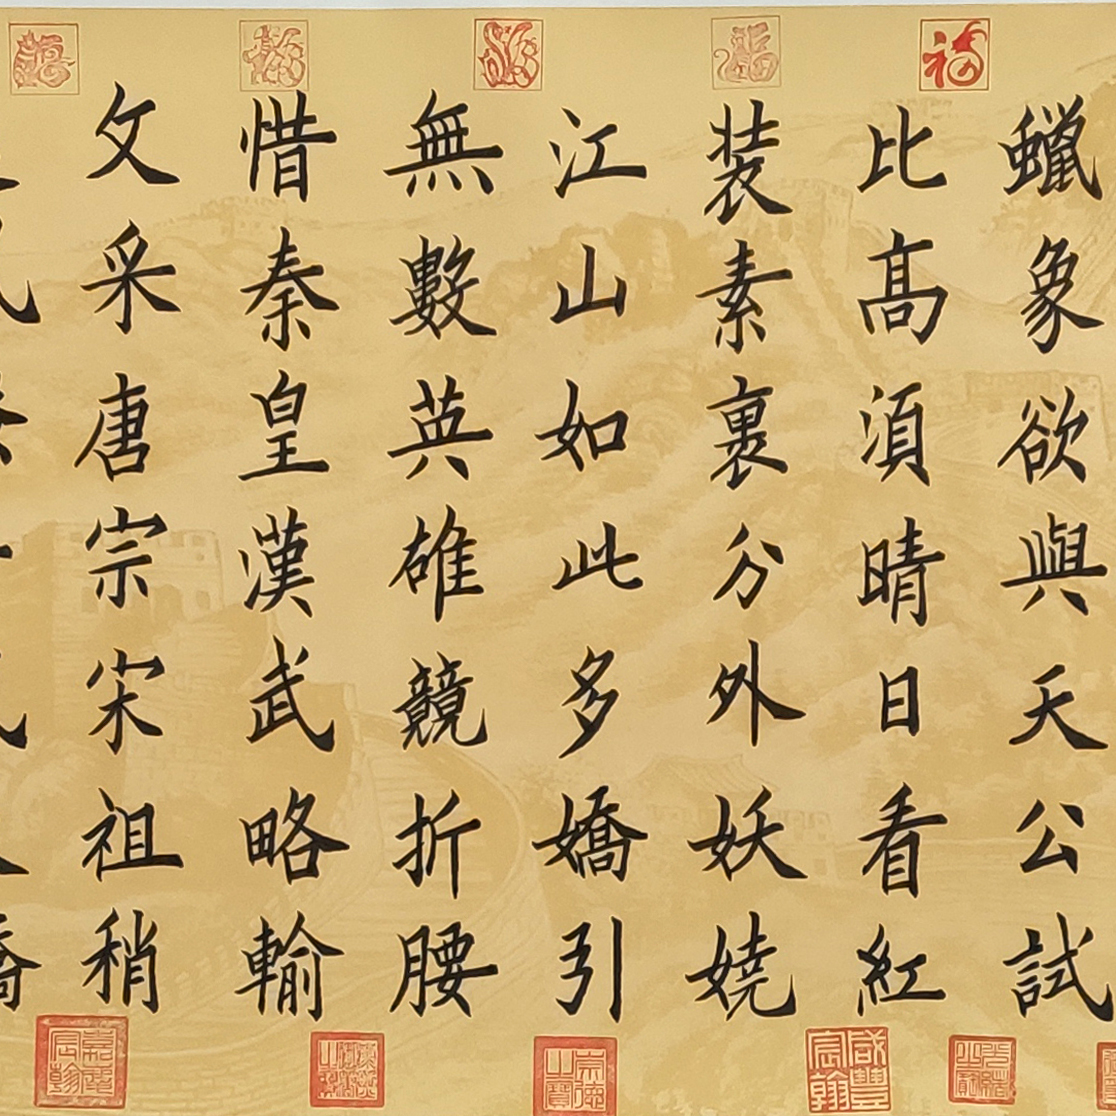 蠟象欲與天公試
比髙須晴日看紅
装素裹分外妖娆
江山如此多嬌引
無數英雄競折腰
惜秦皇漢武略輸
文采唐宗宋祖稍
福
咸豐宸翰